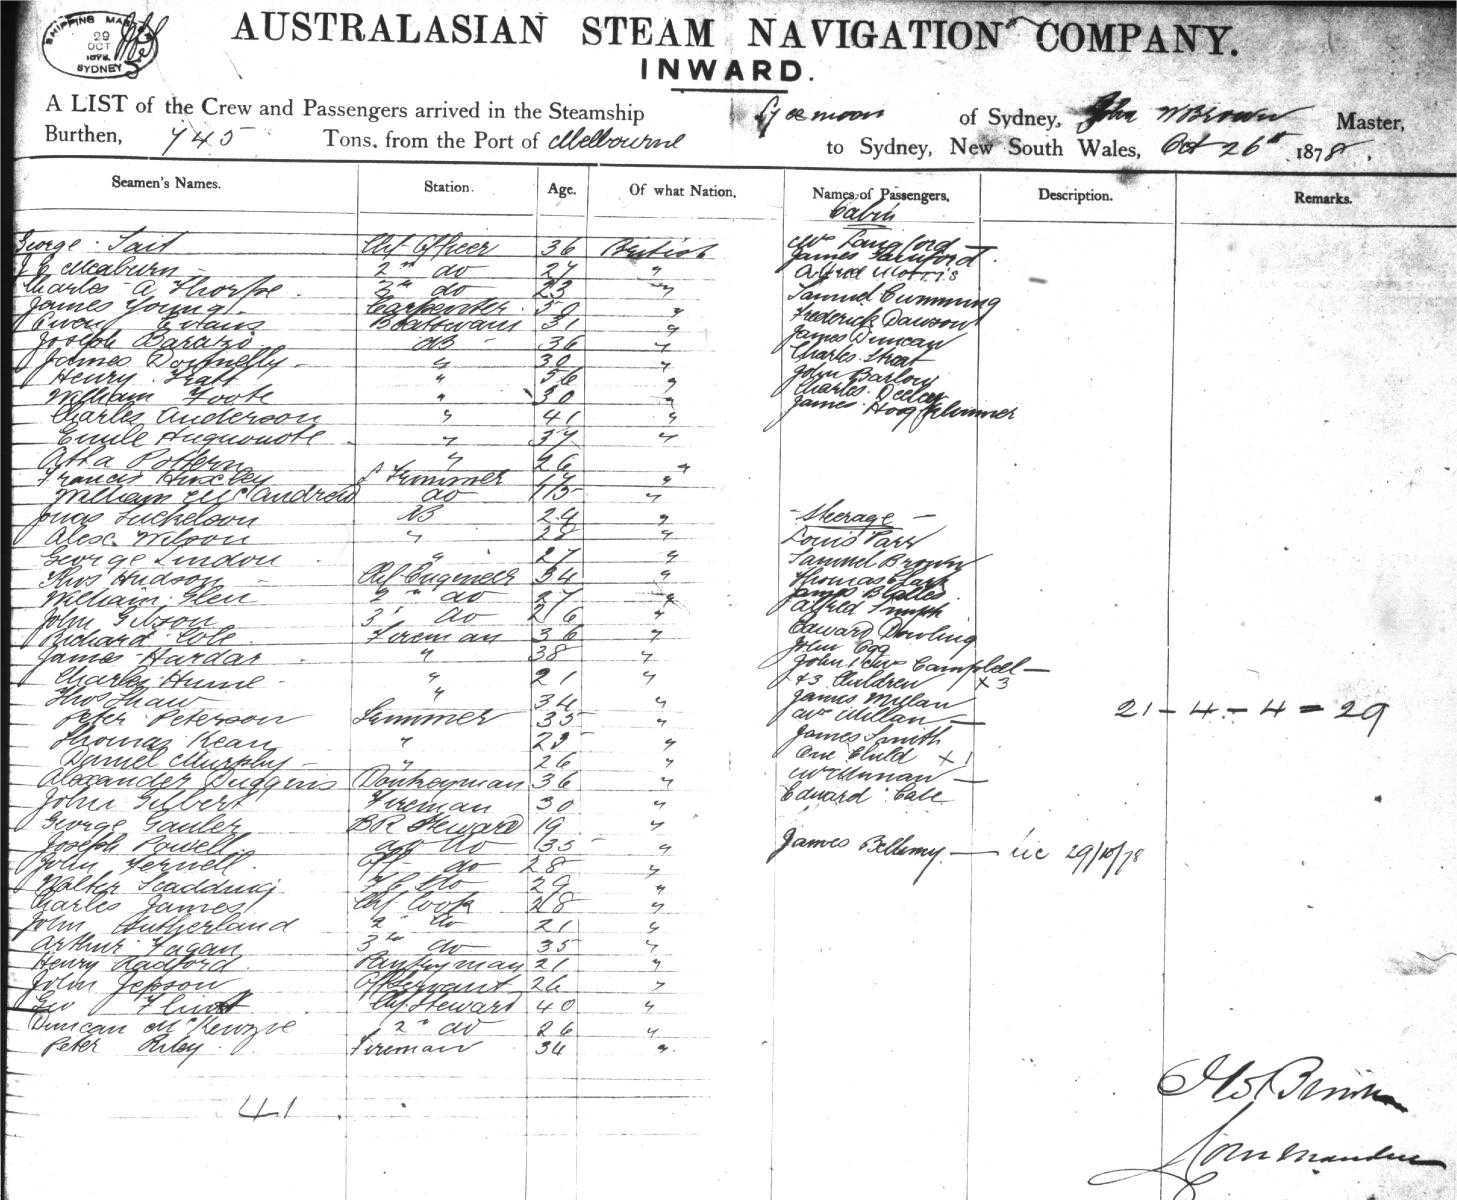 SHIPPING MAS
29
OCT
1878
SYDNEY
AUSTRALASIAN STEAM NAVIGATION COMPANY.
INWARD.
A LIST of the Crew and Passengers arrived in the Steamship Lyeemoon of Sydney, John W Brown Master,
Burthen, 745 Tons, from the Port of Melbourne to Sydney, New South Wales, Oct 26th 1878.
Seamen's Names. Station. Age. Of what Nation. Names of Passengers, Description. Remarks.
Cabin
George Tait Chf Officer 36 British Mr Langford
2nd do 27 " James
Charles A Thorpe 3rd do 23 " Alfred Morris
James Young Carpenter 50 " Samuel Cumming
Owen Evans Boatswain 31 " Frederick Dawson
Joseph AB 36 " James Duncan
James Donnelly " 30 " Charles
Henry Pratt " 56 " John Barlow
William Foote " 30 " Charles
Charles Anderson " 41 " James Hoog
Emile " 37 "
" 26 "
Francis Huxley Trimmer 17 "
William McAndrew do "
Jonas AB 24 " Steerage
Alex Wilson " 28 " Louis Parr
George Lindon " 27 " Samuel Brown
Thos Hudson Chf Engineer 34 " Thomas Clark
William Glen 2nd do 27 " James
John Gibson 3' do 26 " Alfred
Richard Cole Fireman 36 " Edward Dowling
James Hardar " 38 " John Egg
Charles Hume " 21 " John Campbell
Thos Shaw " 34 " +3 Children x 3
Peter Peterson Trimmer 35 " James Millan
21 - 4 - 4 = 29
Thomas Kean " 23 " Mrs Millan
Daniel Murphy " 26 " James Smith
Alexander Duggins Donkeyman 36 " One Child x 1
John Gilbert Fireman 30 "
George Gauler BR Steward 19 " Edward Cale
Joseph Powell do do 35 " James Bellamy 29/10/78
John Fernell do 28 "
Walter Scadding FC do 29 "
Charles James Chf Cook 28 "
John Sutherland 2nd do 21 "
Arthur Fagan 3rd do 35 "
Henry Radford Pantryman 21 "
John Jepson Servant 26 "
Geo Flint Chf Steward 40 "
Duncan McKenzie 2nd do 26 "
Peter Riley Fireman 34 "
41
Commander